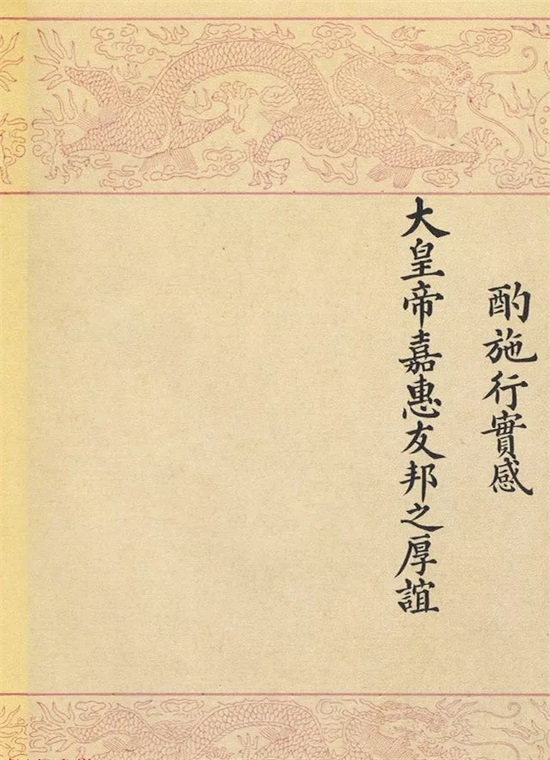 酌施行實感
大皇帝嘉惠友邦之厚誼